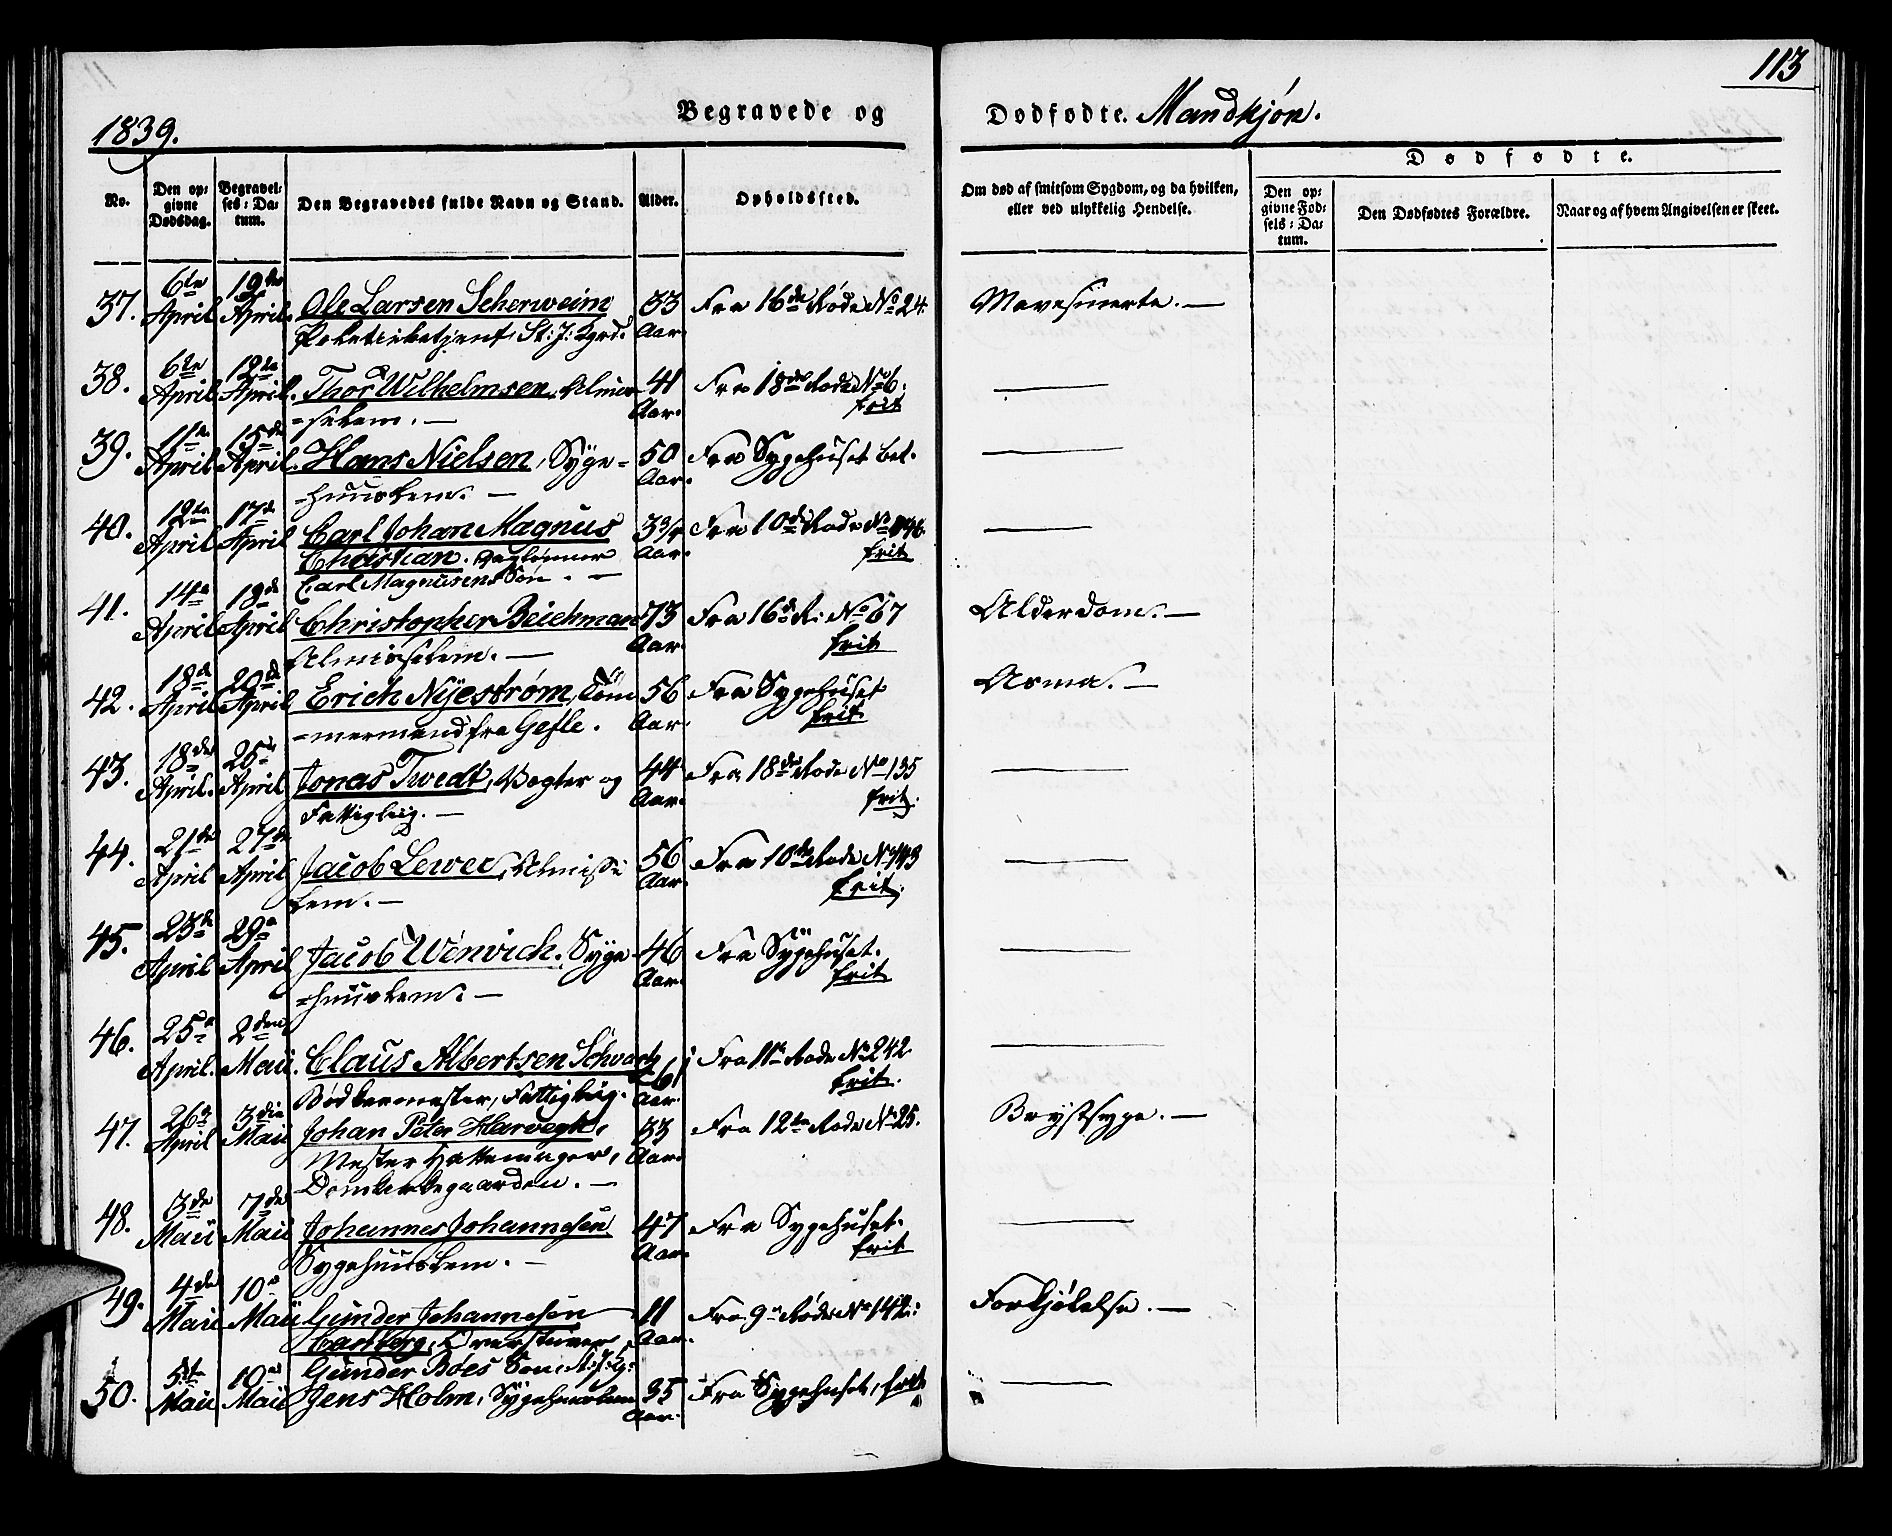 113
1839.
Begravede og Dødfødte. Mandkjøn.
No.
Den opgivne Dødsdag.
Begravelses-Datum.
Den Begravedes fulde Navn og Stand.
Alder.
Opholdssted.
Om død af smitsom Sygdom, og da hvilken, eller ved ulykkelig Hendelse.
Dødfødte.
Den opgivne Fødsels-Datum.
Den Dødfødtes Forældre.
Naar og af hvem Angivelsen er skeet.
37. 6te April 19de April. Ole Larsen Scherweim 33 Aar Fra 16de Rode No 24. Mavesmerte. —
St: J: Kgrd.
38. 6te April 12te April. Thor Wilhelmsen, Almis- 41 Aar. Fra 18de Rode No 6. frit —
=selem. —
39. 11te April 15de April. Hans Nielsen, Syge= 50 Aar. Fra Sygehuset bet. —
=huuslem. —
40. 12te April 17de April Carl Johan Magnus 3 3/4 Aar. Fra 10de Rode No frit —
Christian. Dagleiner
Carl Magnusens Søn. —
41. 14de April 18de April Christopher Beichman 73 Aar. Fra 16de R: No 67 frit Alderdom. —
Almisselem. —
42. 18de April 20de April Erich Nÿestrøm, Tøm 56 Aar. Fra Sygehuset frit. Asma. —
=mermand fra Gefle.
43. 18de April. 25de April Jonas Twedt, Vægter og 44 Aar. Fra 18de Rode No 135 frit. —
Fattiglig. —
44. 21de April 27de April Jacob Lewer, Almisse 56 Aar. Fra 10de Rode No 143 frit. —
lem. —
45. 23de April 29de April Jacob Wenvich. Syge 46 Aar. Fra Sÿgehuset. frit —
=huuslem. —
46. 25de April. 2den Maii. Claus Albertsen Schvartz 61 Aar. Fra 11te Rode No 242. frit. —
Bødkermester, Fattiglig.
47. 26de April 3die Maii Johan Peter Harvegh, 33 Aar. Fra 12te Rode No 25. Brystsyge. —
Mester Hattemager,
Domkirkegaarden. —
48. 3de Maii 7de Maii Johannes Johannesen 47 Aar. Fra Sygehuset. frit —
Sygehuuslem. —
49. 4de Maii 10de Maii Gunder Johannesen 11 Aar. Fra 9de Rode No 142: Forkjølelse. —
Carlberg,
Gunder Bøes Søn, St: J: Kg:
50. 5te Maii 10de Maii Jens Holm, Sÿgehuuslem 35 Aar. Fra Sygehuset, frit —